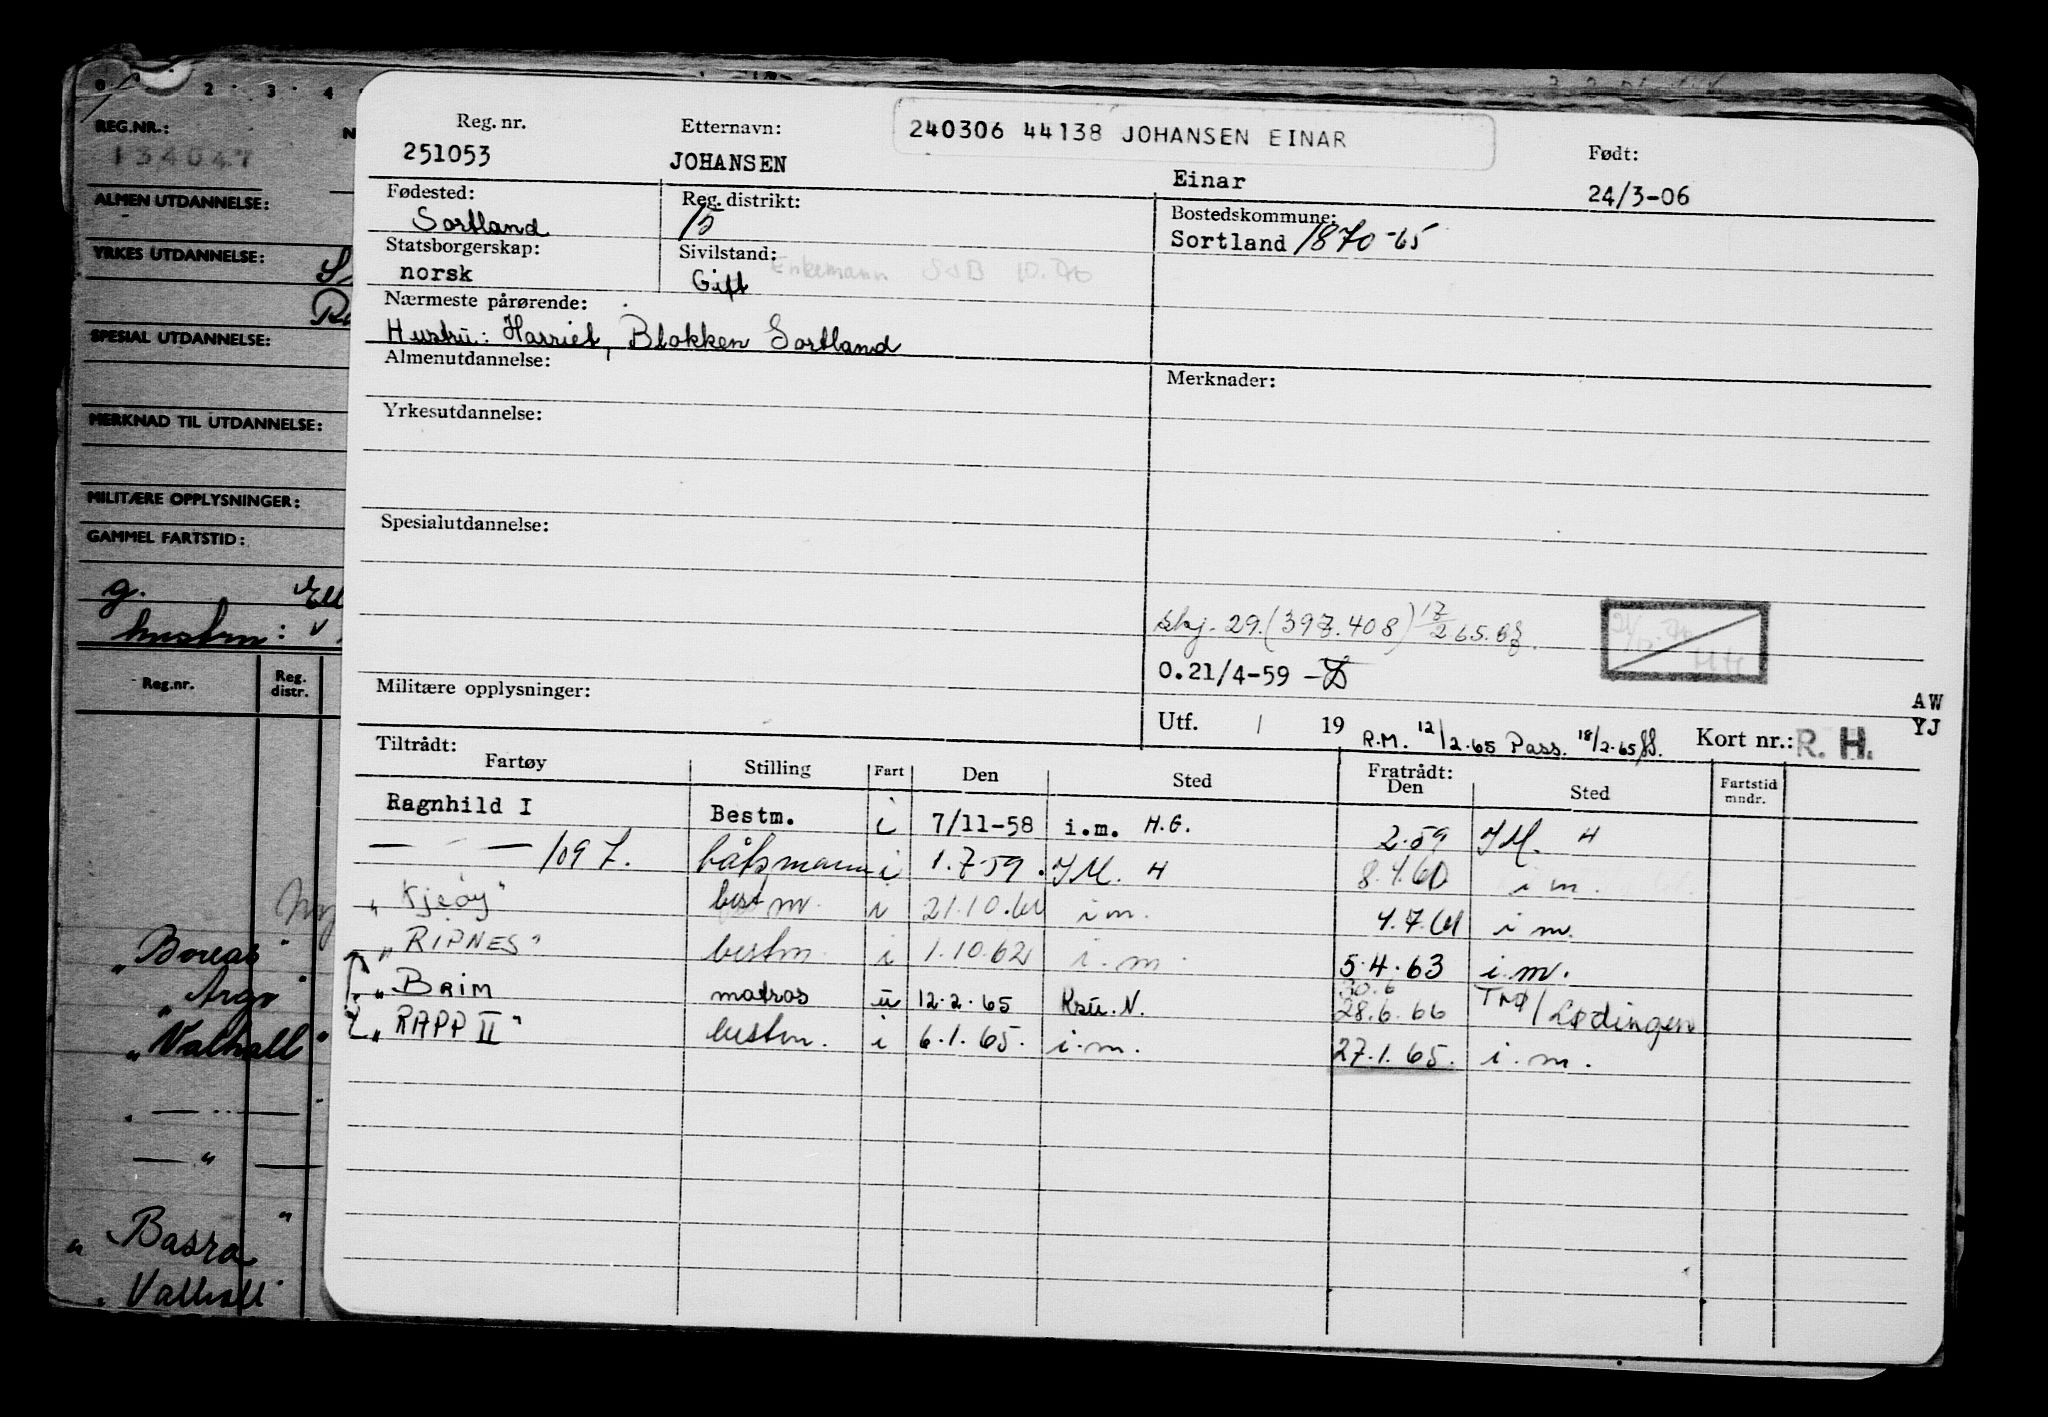 0 2 3 4
REG.NR.:
134047
ALMEN UTDANNELSE:
YRKES UTDANNELSE:
SPESIAL UTDANNELSE:
MERKNAD TIL UTDANNELSE:
MILITÆRE OPPLYSNINGER:
GAMMEL FARTSTID:
g.
hustru:
Reg.nr. Reg. distr.
"Boreas"
"Argo"
"Valhall"
"Basra"
"Valhall"
240306 44138 JOHANSEN EINAR
Reg. nr. Etternavn: Født:
251053 JOHANSEN Einar 24/3-06
Fødested: Reg. distrikt: Bostedskommune:
Sortland 15 Sortland 1870-65
Statsborgerskap: Sivilstand:
norsk Gift Enkemann
Nærmeste pårørende:
Hustru: Harriet, Blokken Sortland
Almenutdannelse: Merknader:
Yrkesutdannelse:
Spesialutdannelse:
skj. 29. (397.408) 17/2 65.
0.21/4-59
Militære opplysninger:
AW
YJ
Utf. / 19 R.M. 12/2.65 Pass. 18/2.65 Kort nr.: R. H.
Tiltrådt: Fratrådt:
Fartøy Stilling Fart Den Sted Den Sted Fartstid mndr.
Ragnhild I Bestm. i 7/11-58 i.m. H.G. 2.59 IM. H
— " — 109 T. båtsmann i 1.7.59. IM. H 8.4.60 i m.
"Kjeøy" bestm. i 21.10.60 i m. 4.7.61 i m.
"RIPNES" bestm. i 1.10.62 i. m. 5.4.63 i. m.
"BRIM matros u 12.2.65 Ksu. N. 30.6 28.6.66 TMØ/Lødingen
"RAPP II" bestm. i 6.1.65. i.m. 27.1.65. i. m.